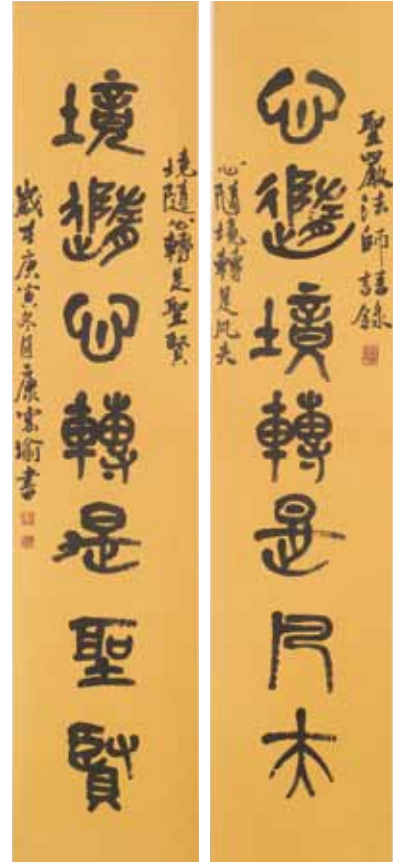 聖嚴法師語錄
心隨境轉是凡夫
心隨境轉是凡夫
境隨心轉是聖賢
境隨心轉是聖賢
歲在庚寅冬月康寀瑜書